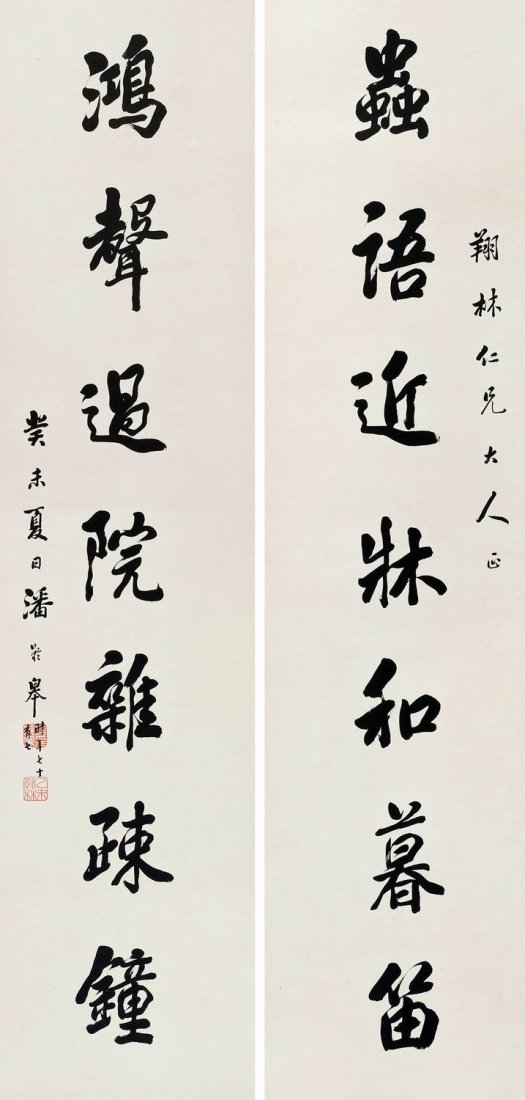 翔林仁兄大人正
蟲語近牀和暮笛
鴻聲過院雜疎鐘
癸未夏日潘齡皋時年七十有七